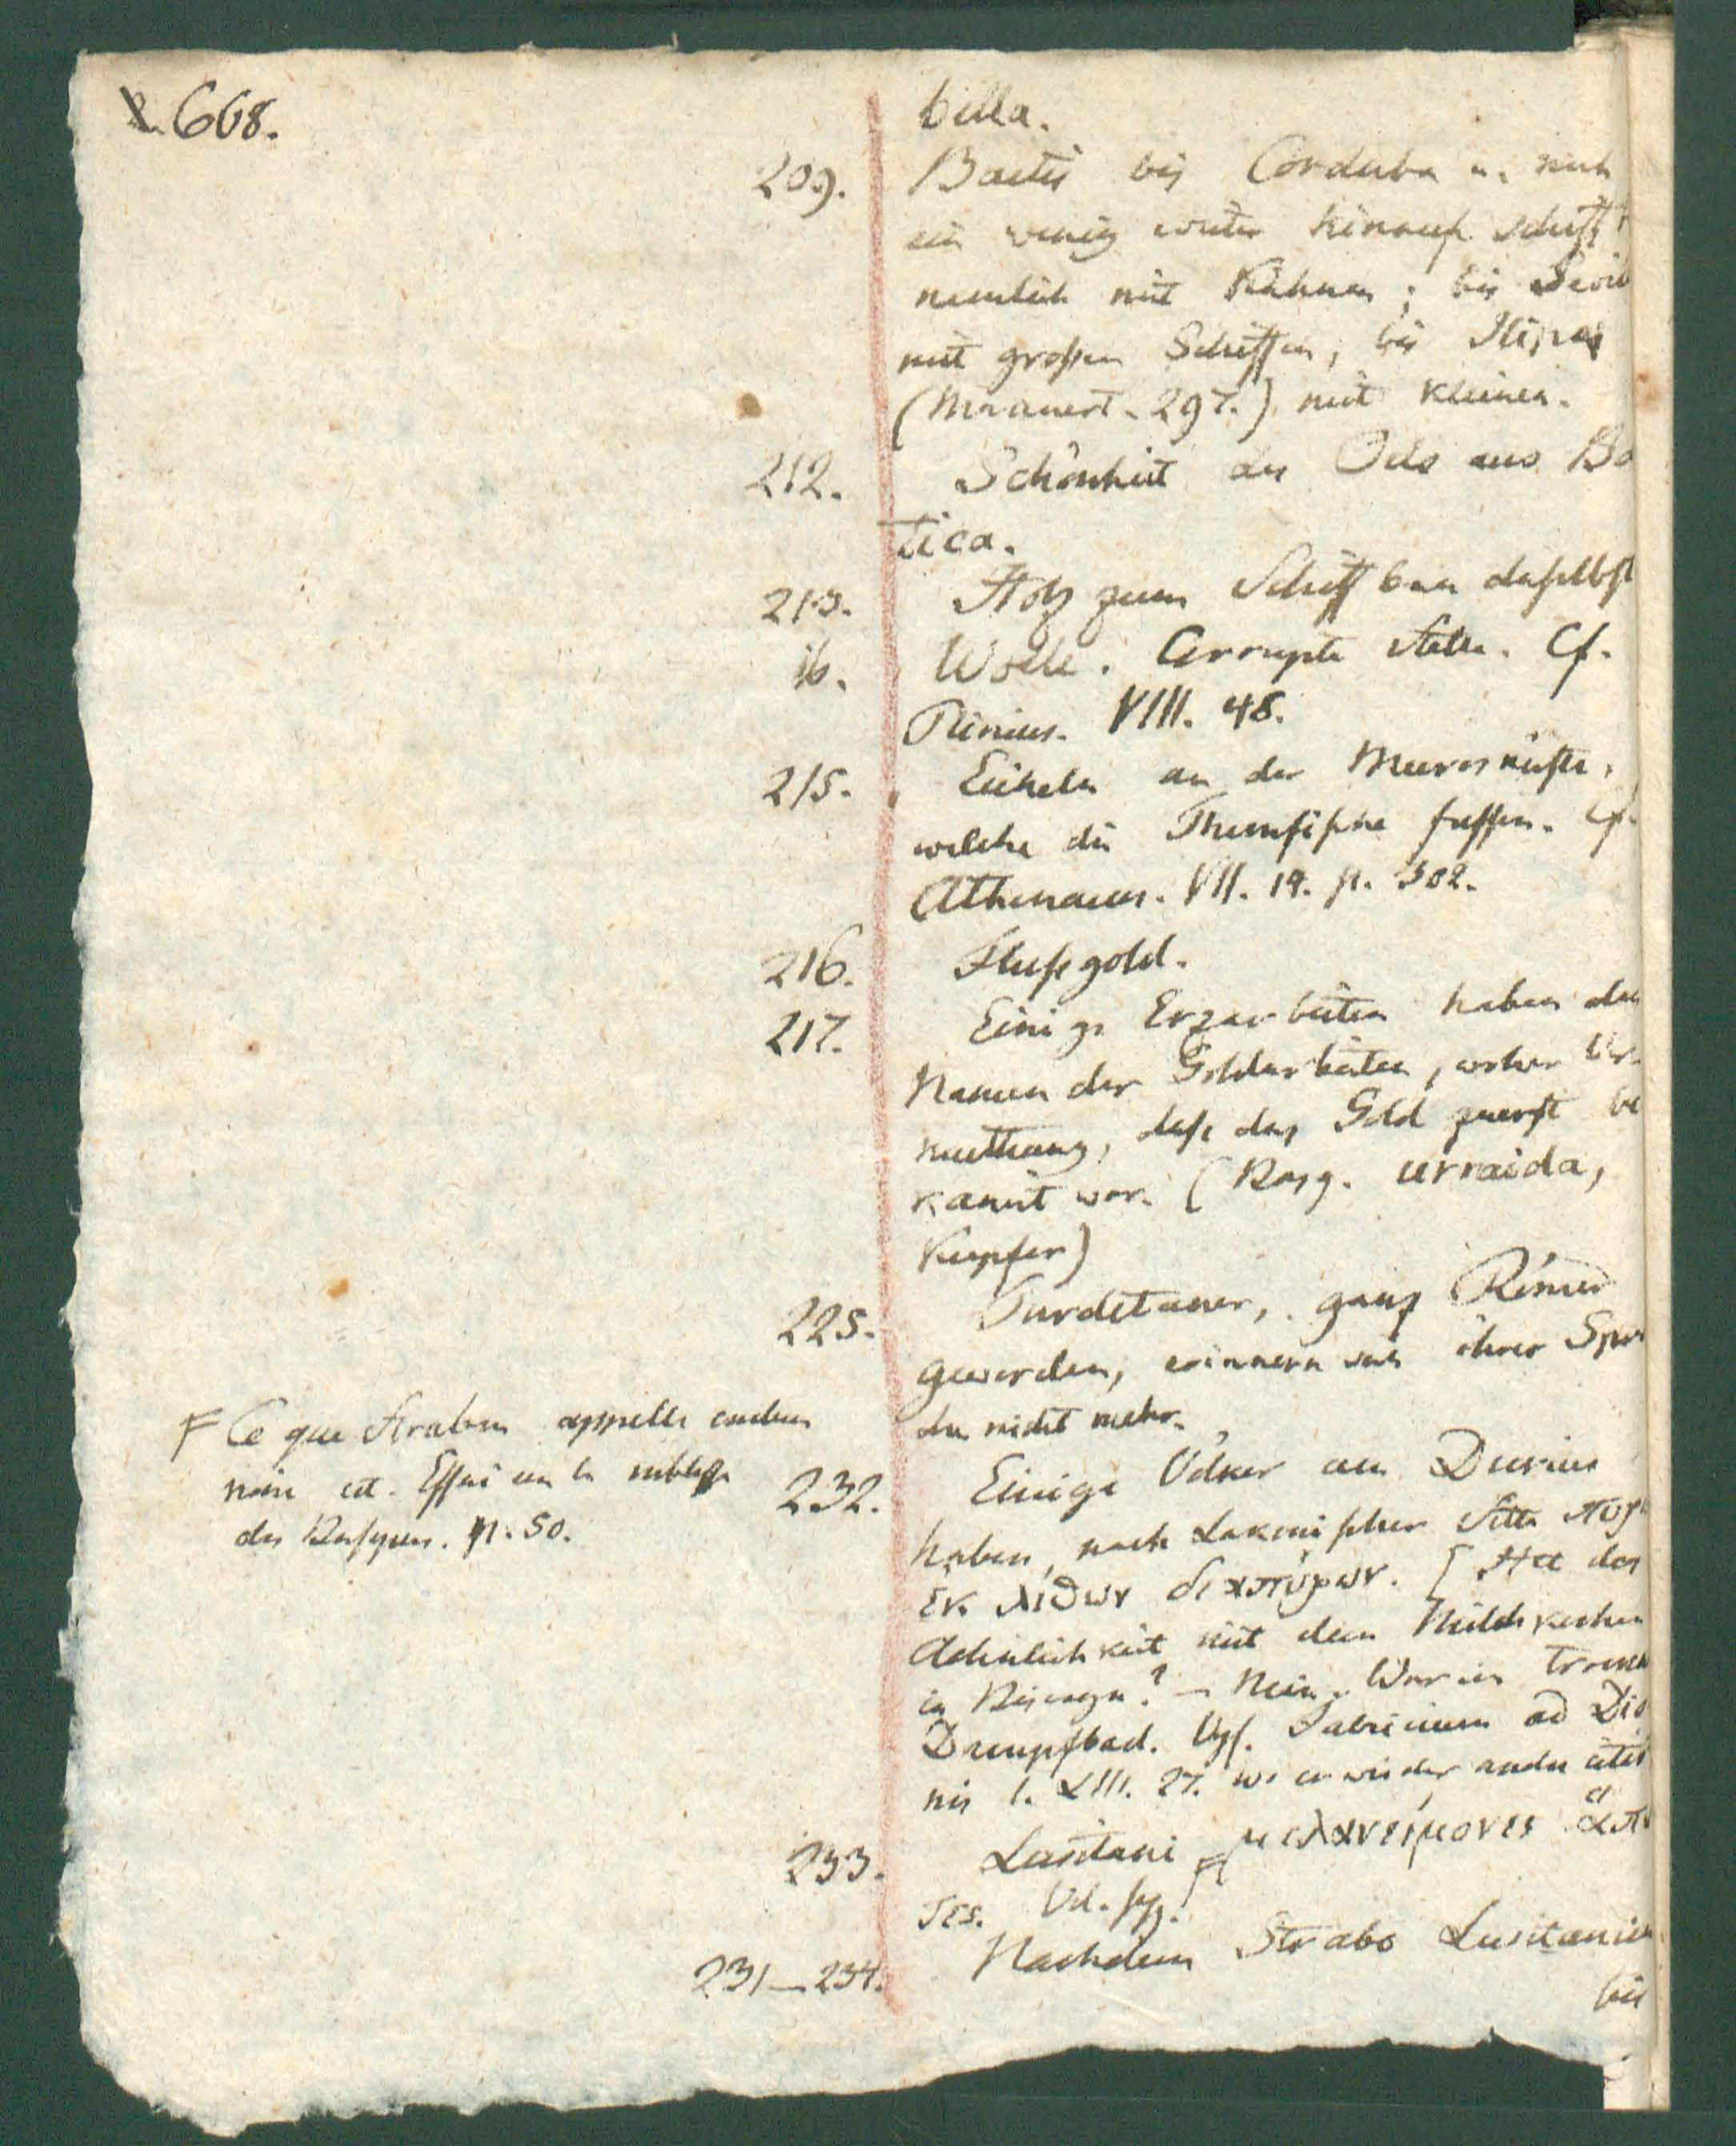 668.
billa.
209. Baetis bis Corduba u. noch
ein wenig weiter hinauf schifft
nemlich mit Kähnen; bis Sevil
mit großen Schiffen, bis Ilipa
(Mannert. 297.) mit kleinen.
212. Schönheit des Oels aus Bä
tica.
213. Holz zum Schiffbau daselbst
ib. Wolle. Corrupte Stelle. Cf.
Plinius. VIII. 48.
215. Eicheln an der Meeresküste,
welche die Thunfische fressen. Cf.
Athenaeus. VII. 14. p. 302.
216. Flußgold.
217. Einige Erzarbeiten haben den
Namen der Goldarbeiten, woher Ver-
muthung, daß das Gold zuerst be
kannt war. (Basq. urraida,
Kupfer)
225. Turdetaner, ganz Römer
geworden, erinnern sich ihrer Spra
che nicht mehr.
232. Einige Völker am Durius
haben, nach Lakonischer Sitte πυρι
ἐκ λίθων διαπύρων. [Hat das
Aehnlichkeit mit dem Milchkochen
in Biscaya? – Nein. War ein trockn
Dampfbad. Vgl. Fabricium ad Dio
nis l. LIII. 27. wo er wieder andre citir
233. Lusitani F μελανείμονες ἅπαν
τες. Vd. sqq.
231–234. Nachdem Strabo Lusitanien
bis
F Ce que Strabon appelle couleur
noire est. Essai sur la noblesse
des Basques. p. 50.